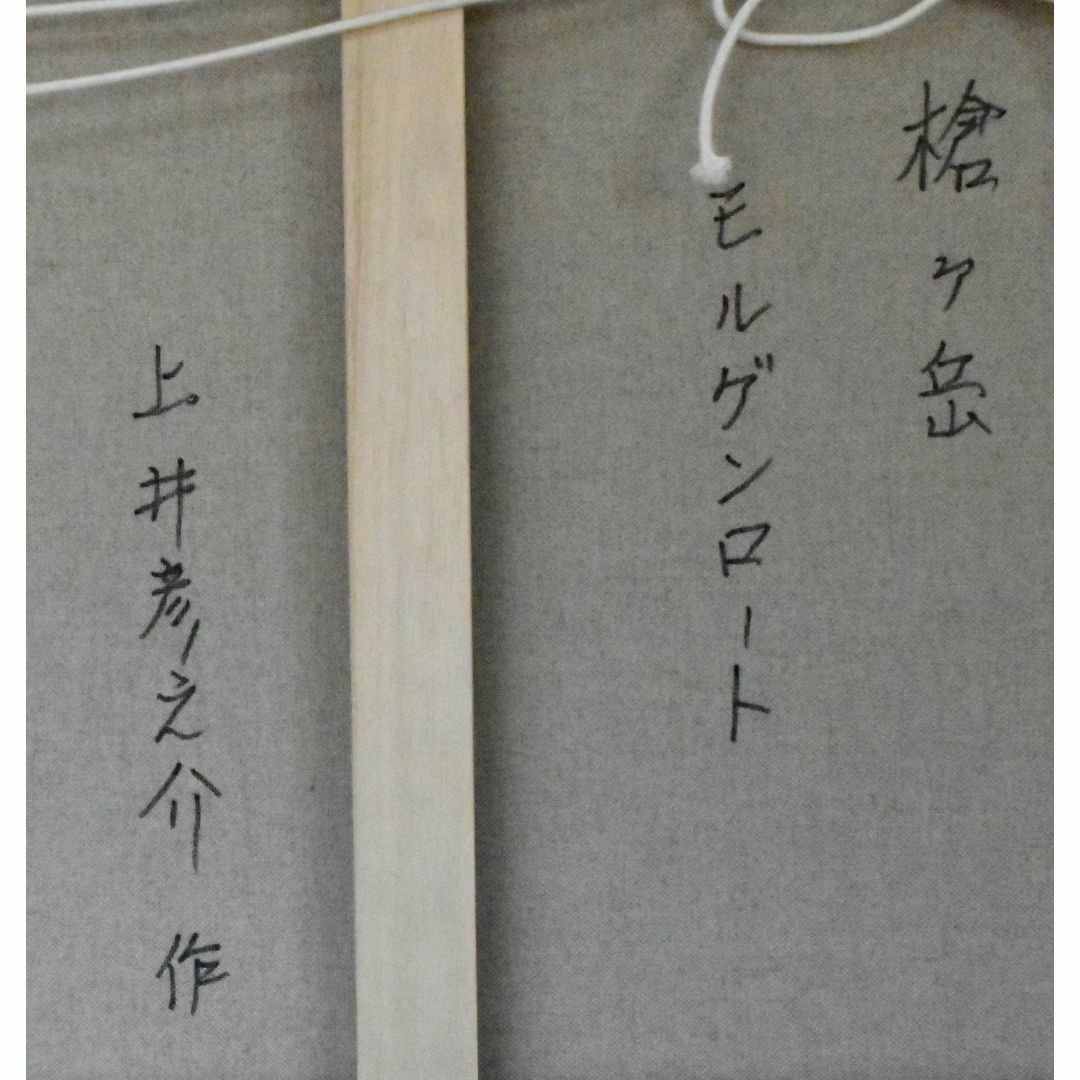 槍ヶ岳
モルゲンロート
上井彦之介 作